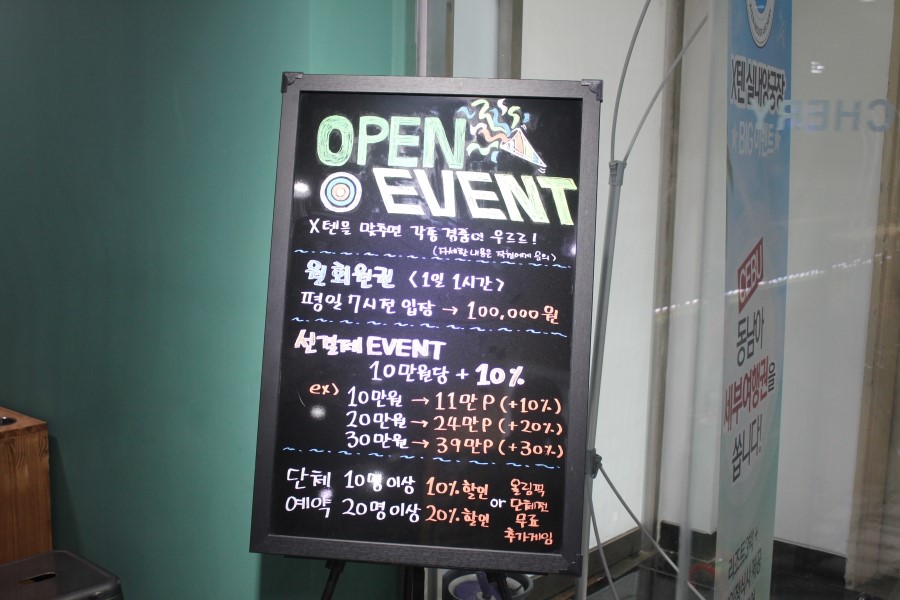 OPEN
EVENT
X텐을 맞추면 각종 경품이 우르르!
(자세한 내용은 직원에게 문의)
월 회원권 <1일 1시간>
평일 7시전 입장 → 100,000원
선결제 EVENT
10만원당 + 10%
ex) 10만원 → 11만P (+10%)
20만원 → 24만P (+20%)
30만원 → 39만P (+30%)
단체 10명 이상 10% 할인
예약 20명 이상 20% 할인
or
올림픽
단체전
무료
추가게임
X텐 실내양궁장
★BIG 이벤트★
CEBU
동남아
세부여행권을
쏩니다!
CHERY